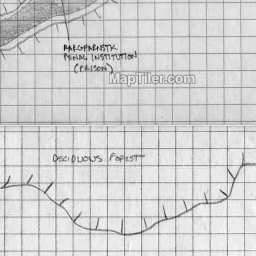 PENAL INSTITUTION
(PRISON)
MapTiler.com
DECIDUOUS FOREST